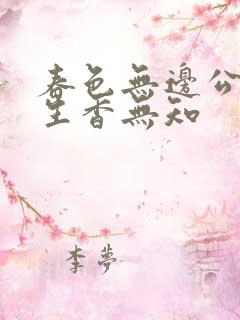 春色無邊公
生香無知
李夢